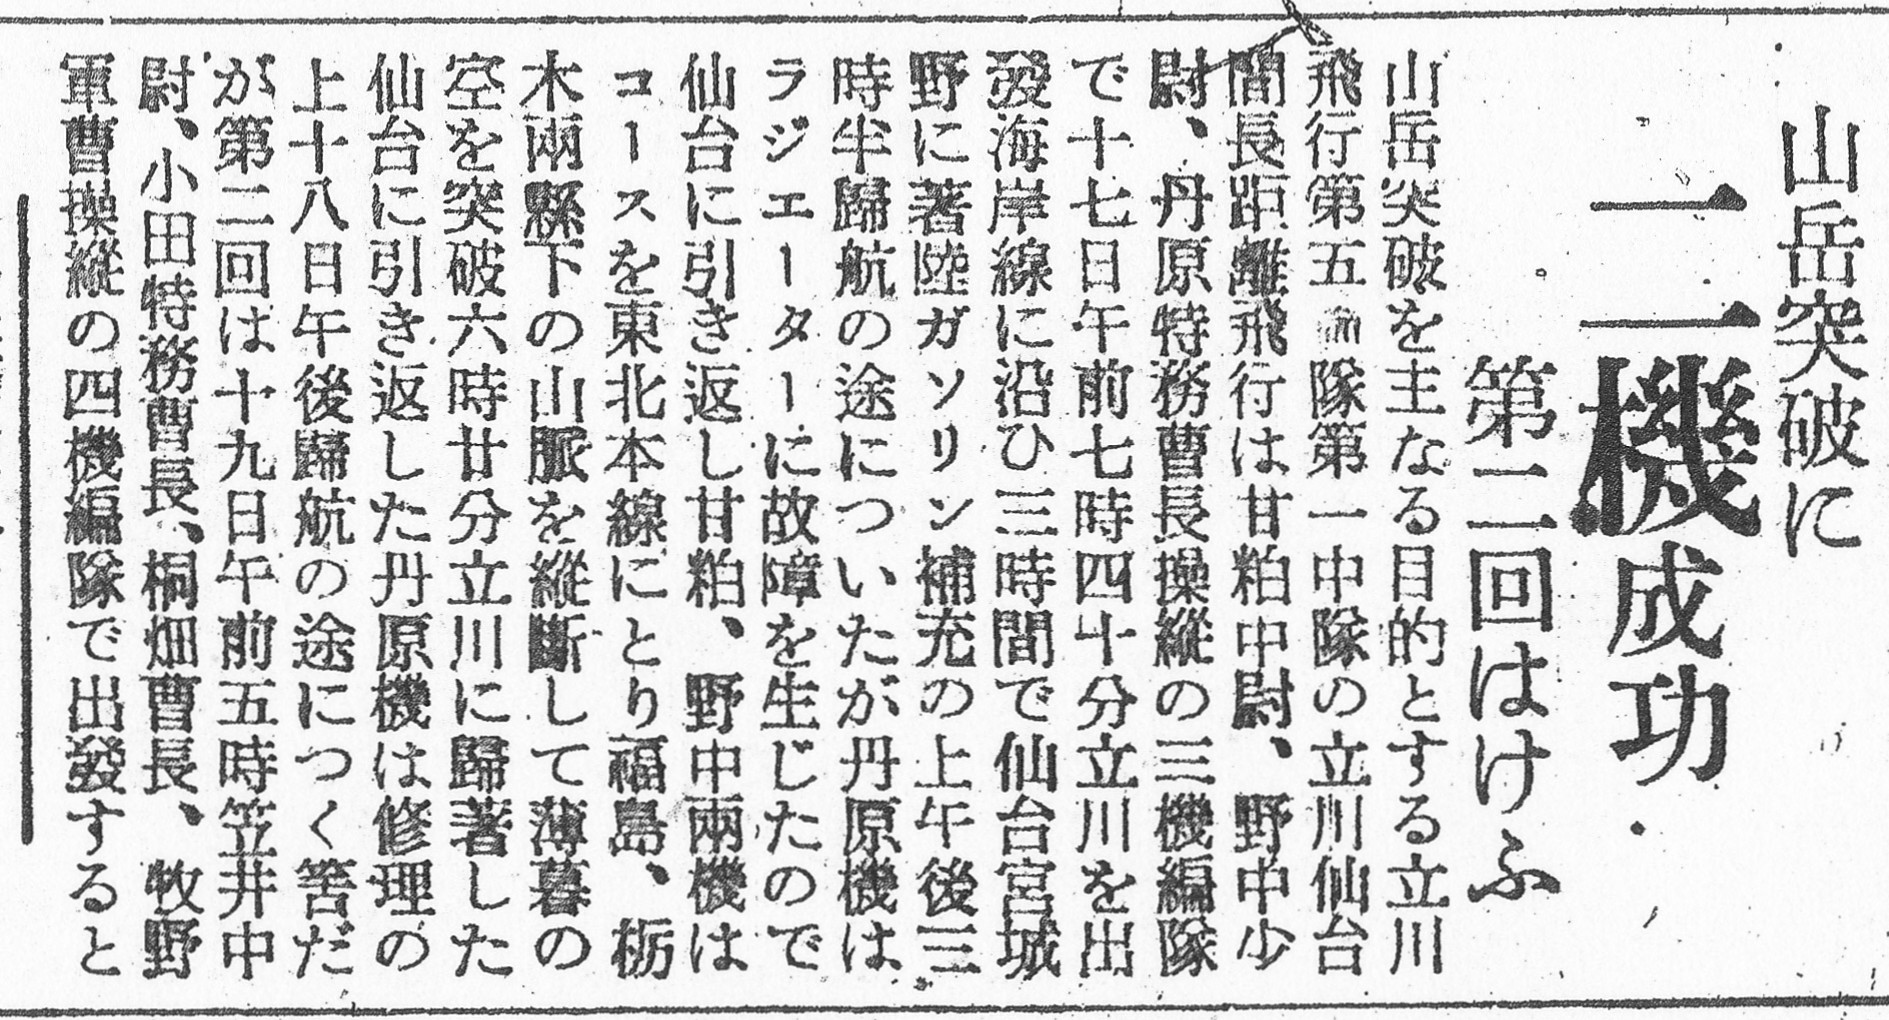 山岳突破に
二機成功
第二回はけふ
山岳突破を主なる目的とする立川
飛行第五聯隊第一中隊の立川仙台
間長距離飛行は甘粕中尉、野中少
尉、丹原特務曹長操縦の三機編隊
で十七日午前七時四十分立川を出
發海岸線に沿ひ三時間で仙台宮城
野に著陸ガソリン補充の上午後三
時半歸航の途についたが丹原機は
ラジエーターに故障を生じたので
仙台に引き返し甘粕、野中兩機は
コースを東北本線にとり福島、栃
木兩縣下の山脈を縦断して薄暮の
空を突破六時廿分立川に歸著した
仙台に引き返した丹原機は修理の
上十八日午後歸航の途につく筈だ
が第二回は十九日午前五時笠井中
尉、小田特務曹長、桐畑曹長、牧野
軍曹操縦の四機編隊で出發すると